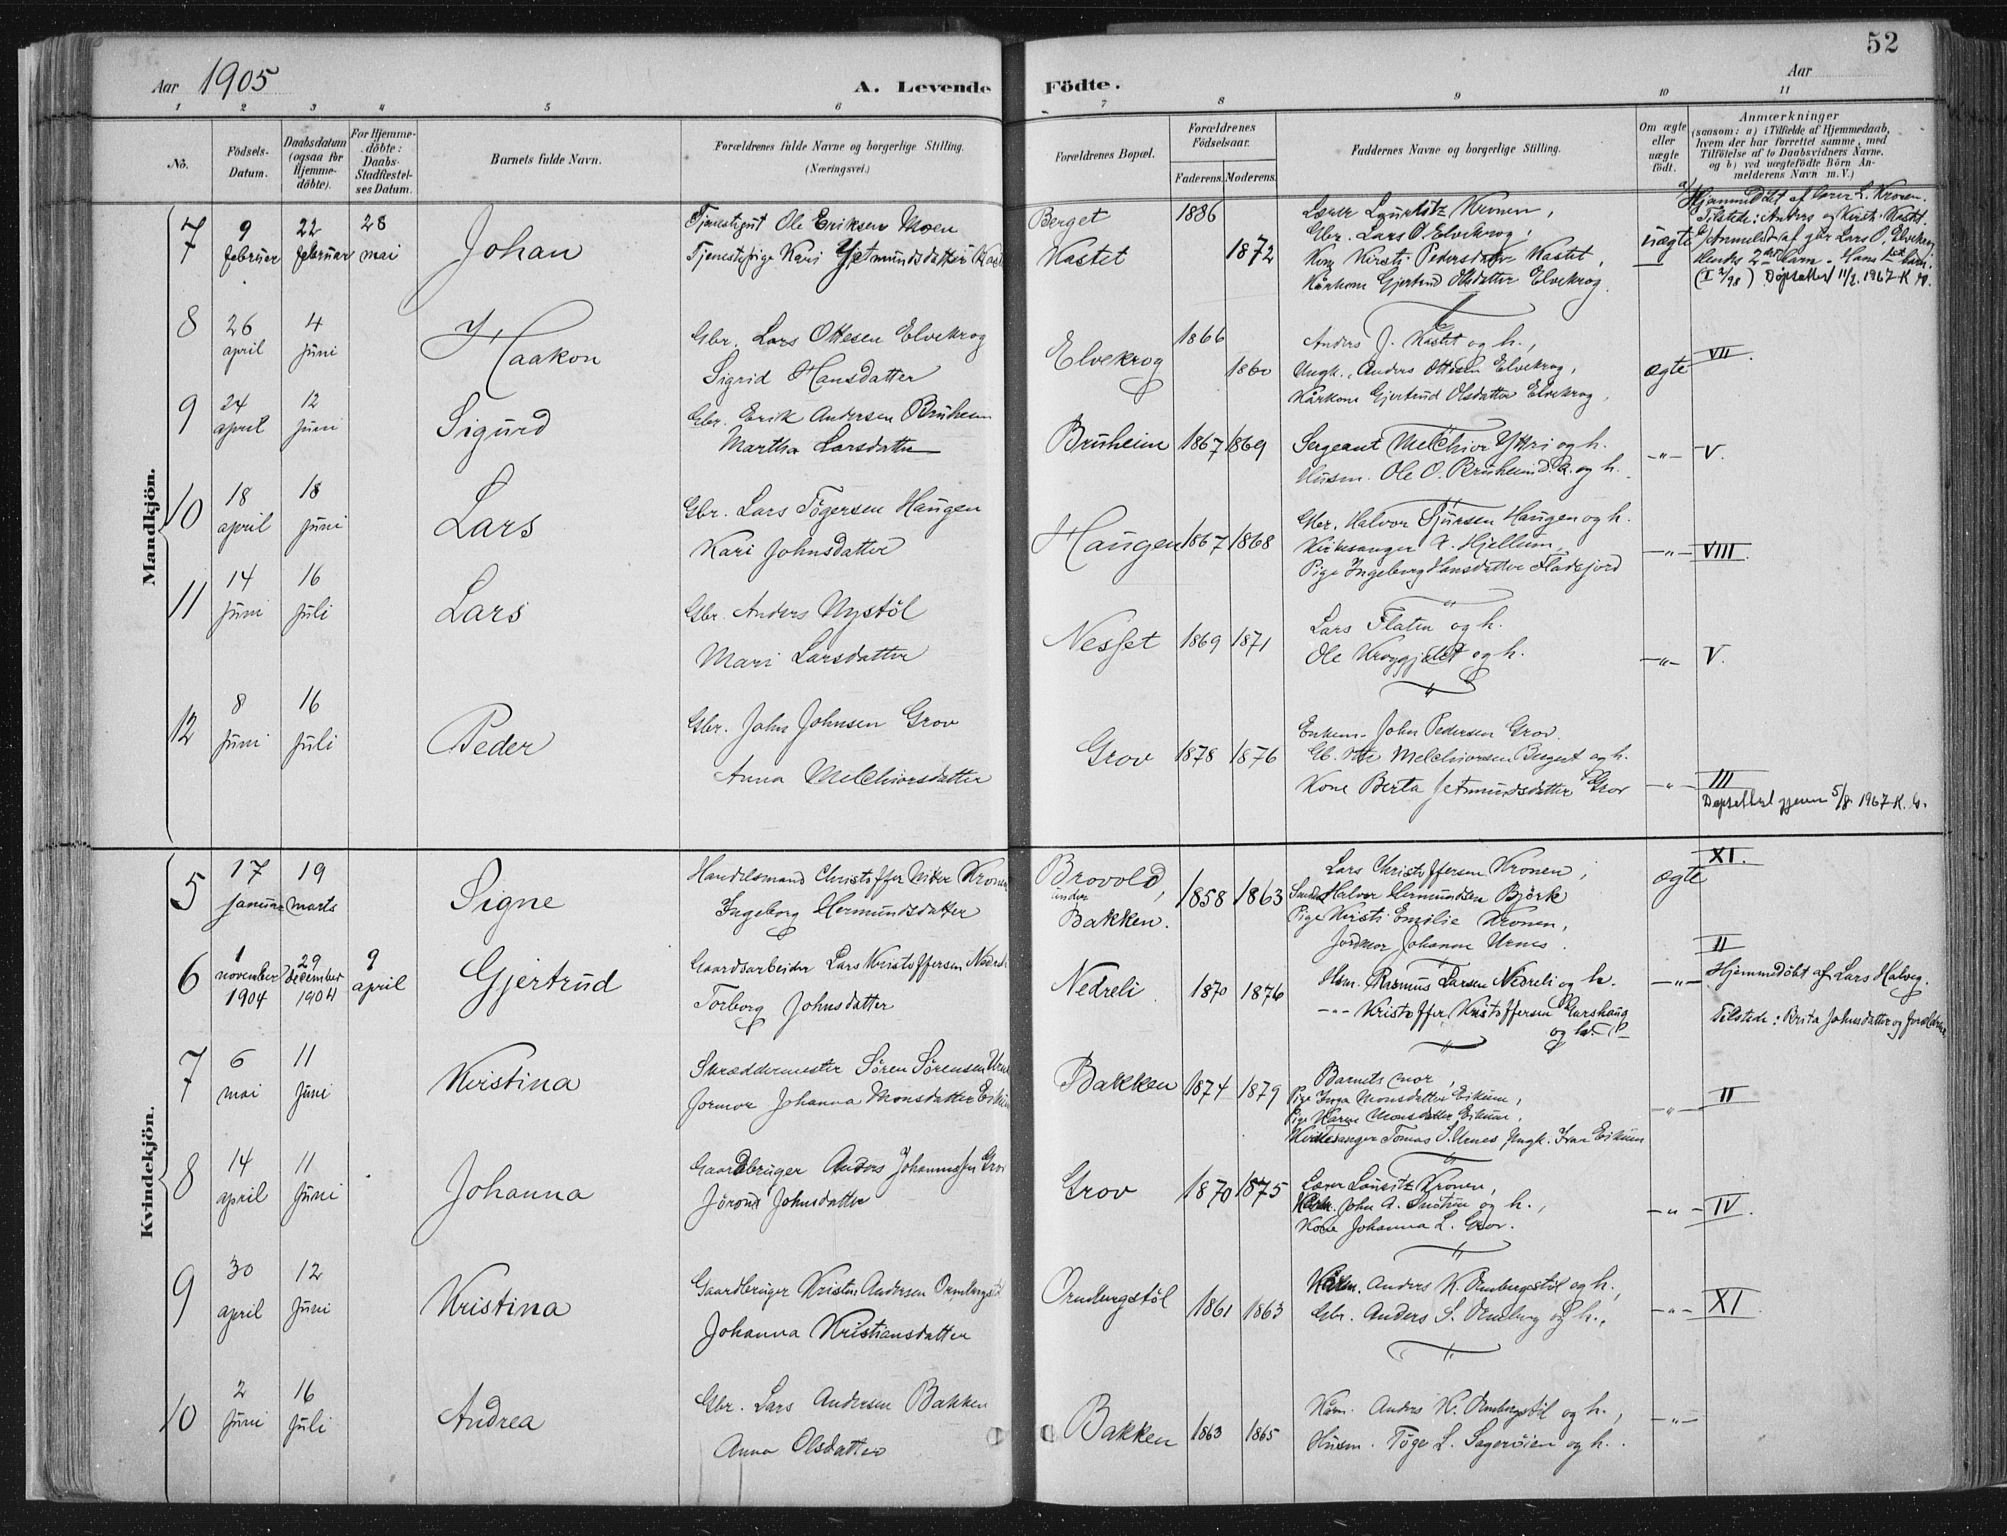 52
Aar 1905
A. Levende Födte.
Aar
1 2 3 4 5 6 7 8 9 10 11
No.
Födsels-Datum.
Daabsdatum (ogsaa for Hjemme-döbte).
For Hjemme-döbte: Daabs-Stadfæstel-ses Datum.
Barnets fulde Navn.
Forældrenes fulde Navne og borgerlige Stilling.
(Næringsvei.)
Forældrenes Bopæl.
Forældrenes Födselsaar.
Faderens. Moderens.
Faddernes Navne og borgerlige Stilling.
Om ægte eller uægte födt.
Anmærkninger
(saasom: a) i Tilfælde af Hjemmedaab,
hvem der har forrettet samme, med
Tilföielse af to Daabsvidners Navne,
og b) ved uægtefödte Börn An-
melderens Navn m. V.)
Mandkjön.
7
9 februar
22 februar
28 mai
Johan
Tjenestgut Ole Eriksen Moen
Tjenestepige Kari Jetmundsdatter
Berget
Kastet
1886
1872
Lærer Lauritz Kronen,
Gbr. Lars O. Elvekrog,
Kone Kirsti Pedersdatter Kastet,
Kårkone Gjertrud Olsdatter Elvekrog.
uægte
a) Hjemmedöbt af lærer L. Kronen.
Tilstede: Anders og Kirsti Kastet
b) Anmeldt af gbr Lars O. Elvekrog.
Döpsattest 11/2. 1967 K
8
26 april
4 Juni
Haakon
Gbr. Lars Ottesen Elvekrog
Sigrid Hansdatter
Elvekrog
1866
1860
Anders J. Kastet og h.,
Ungk. Anders Ottesen Elvekrog,
Kårkone Gjertrud Olsdatter Elvekrog.
ægte
VII.
9
24 april
12 Juni
Sigurd
Gbr. Erik Andersen Bruheim
Martha Larsdatter
Bruheim
1867 1869
Sergeant Melchior Yttri og h.
Husm. Ole O. Bruheim og h.
-"-
V.
10
18 april
18 Juni
Lars
Gbr. Lars Tögersen Haugen
Kari Johnsdatter
Haugen
1867 1868
Gbr. Halvor Sjursen Haugen og h.
Kirkesanger Hjellum
Pige Ingeborg Hansdatter Fladfjord
-"-
VIII.
11
14 Juni
16 Juli
Lars
Gbr. Anders Nystöl
Mari Larsdatter
Nesset
1869 1871
Lars Flaten og h.
Ole og h.
-"-
V.
12
8 Juni
16 Juli
Peder
Gbr. John Johnsen Grov
Anna Melchiorsdatter
Grov
1878 1876
Enkem. John Pedersen Grov.
Gb. Otto Melchiorsen Berget og h.
Kone Berta Jetmundsdatter Grov
-"-
III
5/8 1967 K.
Kvindekjön.
5
17 januar
19 marts
Signe
Handelsmand Christoffer Kronen
Ingeborg Hermundsdatter
Brovold, under Bakken.
1858 1863
Lars Christoffersen Kronen,
Halvor Hermundsen Björk
Pige Kirsti Emilie Kronen,
Jordmor Johanne Urnes.
ægte
XI.
6
1 november 1904
29 december 1904
9 april
Gjertrud
Gaardsarbeider Lars Kristoffersen Nedreli
Torborg Johnsdatter
Nedreli
1870 1876
Hsm. Rasmus Larsen Nedreli og h.
-"- Kristoffer Kristoffersen
og h.
-"-
II
Hjemmedöbt af Lars Halveg.
Tilstede: Brita Johnsdatter og forældrene
7
6 mai
11 Juni
Kristina
Skræddermester Sören Sörensen Urnes
Jormor Johanna Monsdatter Eikum
Bakken
1874 1879
Barnets mor,
Pige Inga Monsdatter Eikum,
Pige Karen Monsdatter Eikum,
Kirkesanger Tomas S. Urnes Ungk. Ivar Eikum
-"-
II
8
14 april
11 Juni
Johanna
Gaardbruger Anders Johannessen Grov
Jörond Johnsdatter
Grov
1870 1875
Lærer Lauritz Kronen,
John A. og h.,
Kone Johanna L. Grov.
-"-
IV.
9
30 april
12 Juni
Kristina
Gaardbruger Kristen Andersen Ormbergstöl
Johanna Kristiansdatter
Ormbergstöl
1861 1863
Kårm. Anders K. Ormbergstöl og h.,
Gbr. Anders S. Ormberg og h.,
-"-
XI.
10
2 Juni
16 Juli
Andrea
Gbr. Lars Andersen Bakken
Anna Olsdatter
Bakken
1863 1865
Kårm. Anders K. Ormbergstöl og h.,
Husm. Töge L. Sageröien og h.
-"-